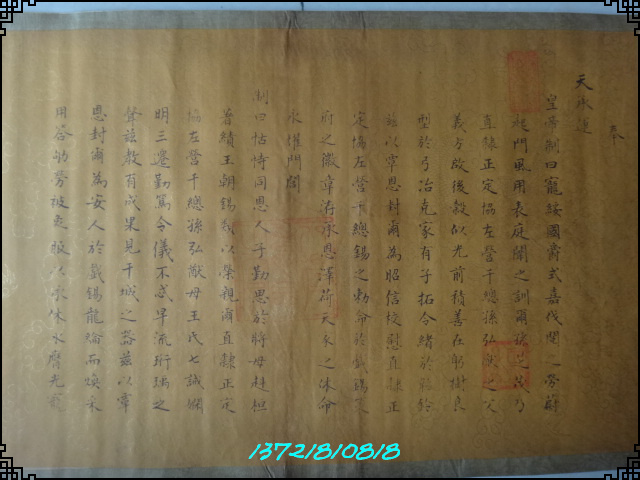 天承運
皇帝制曰寵綏國爵式嘉伐閱之勞蔚
起門風用表庭闈之訓爾孫乃
直隸正定協左營千總孫弘猷之父
義方啟後穀似光前積善在躬樹良
型於弓冶克家有子拓令緒於韜鈐
茲以覃恩封爾為昭信校慰直隸正
定協左營千總錫之勅命於戲錫策
府之徽章洊承恩澤荷天家之休命
永耀門閭
制曰怙恃同恩人子勤思於將母赳桓
著績王朝錫類以榮親爾直隸正定
協左營千總孫弘猷母王氏七誡嫻
明三遷勤篤令儀不忒早流珩瑀之
聲茲教有成果見干城之器茲以覃
恩封爾為安人於戲錫龍綸而煥采
用答劬勞被象服以承休永膺光寵
13721810818